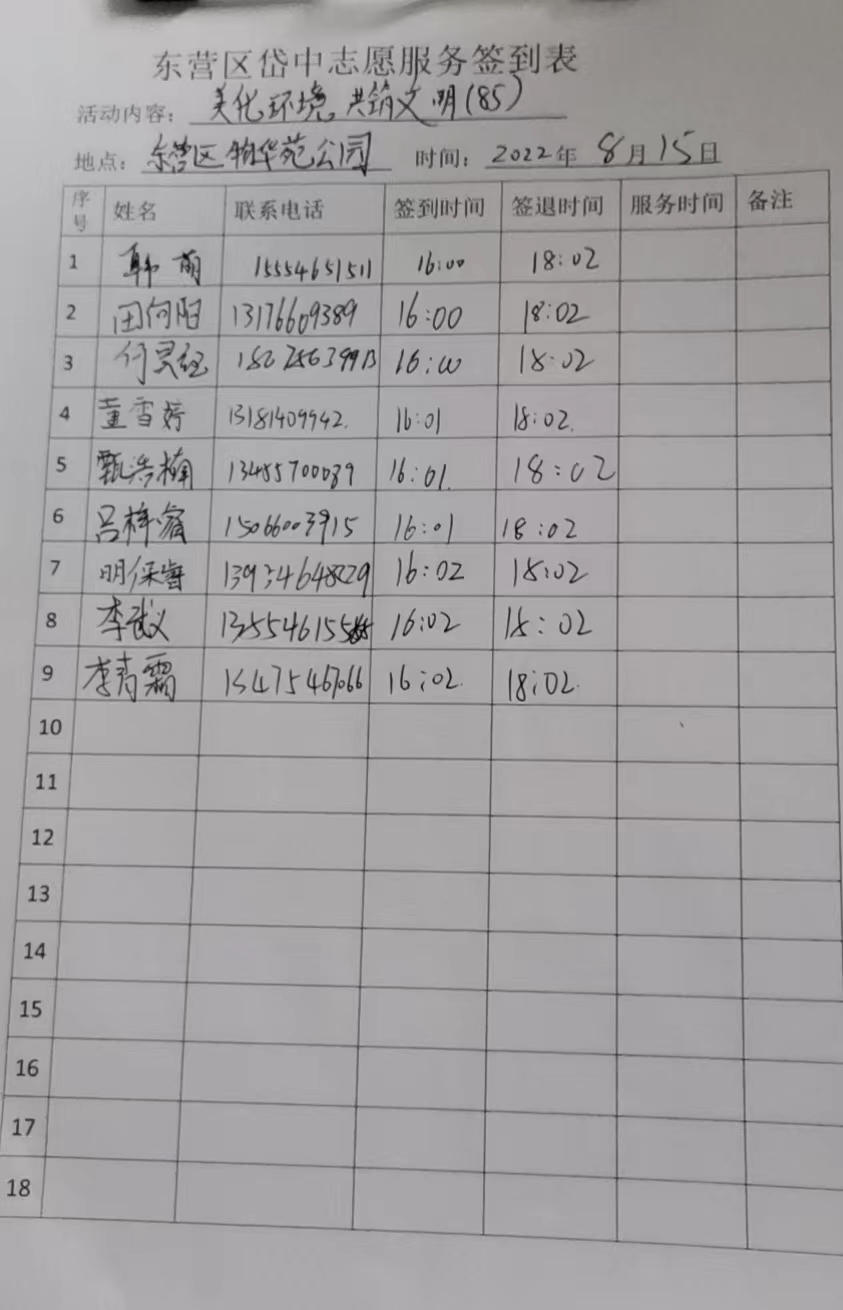 东营区岱中志愿服务签到表
活动内容: 美化环境 共筑文明(85)
地点: 东营区物华苑公园 时间: 2022年 8月15日
序号 姓名 联系电话 签到时间 签退时间 服务时间 备注
1 韩萌 15554651511 16:00 18:02
2 田向阳 13176609389 16:00 18:02
3 16:00 18:02
4 董雪婷 13181409942. 16:01 18:02.
5 甄浩楠 13455700039 16:01. 18:02
6 吕梓宸 15066003915 16:01 18:02
7 明保睿 16:02 18:02
8 李武义 16:02 18:02
9 李青霜 16:02. 18:02.
10
11
12
13
14
15
16
17
18